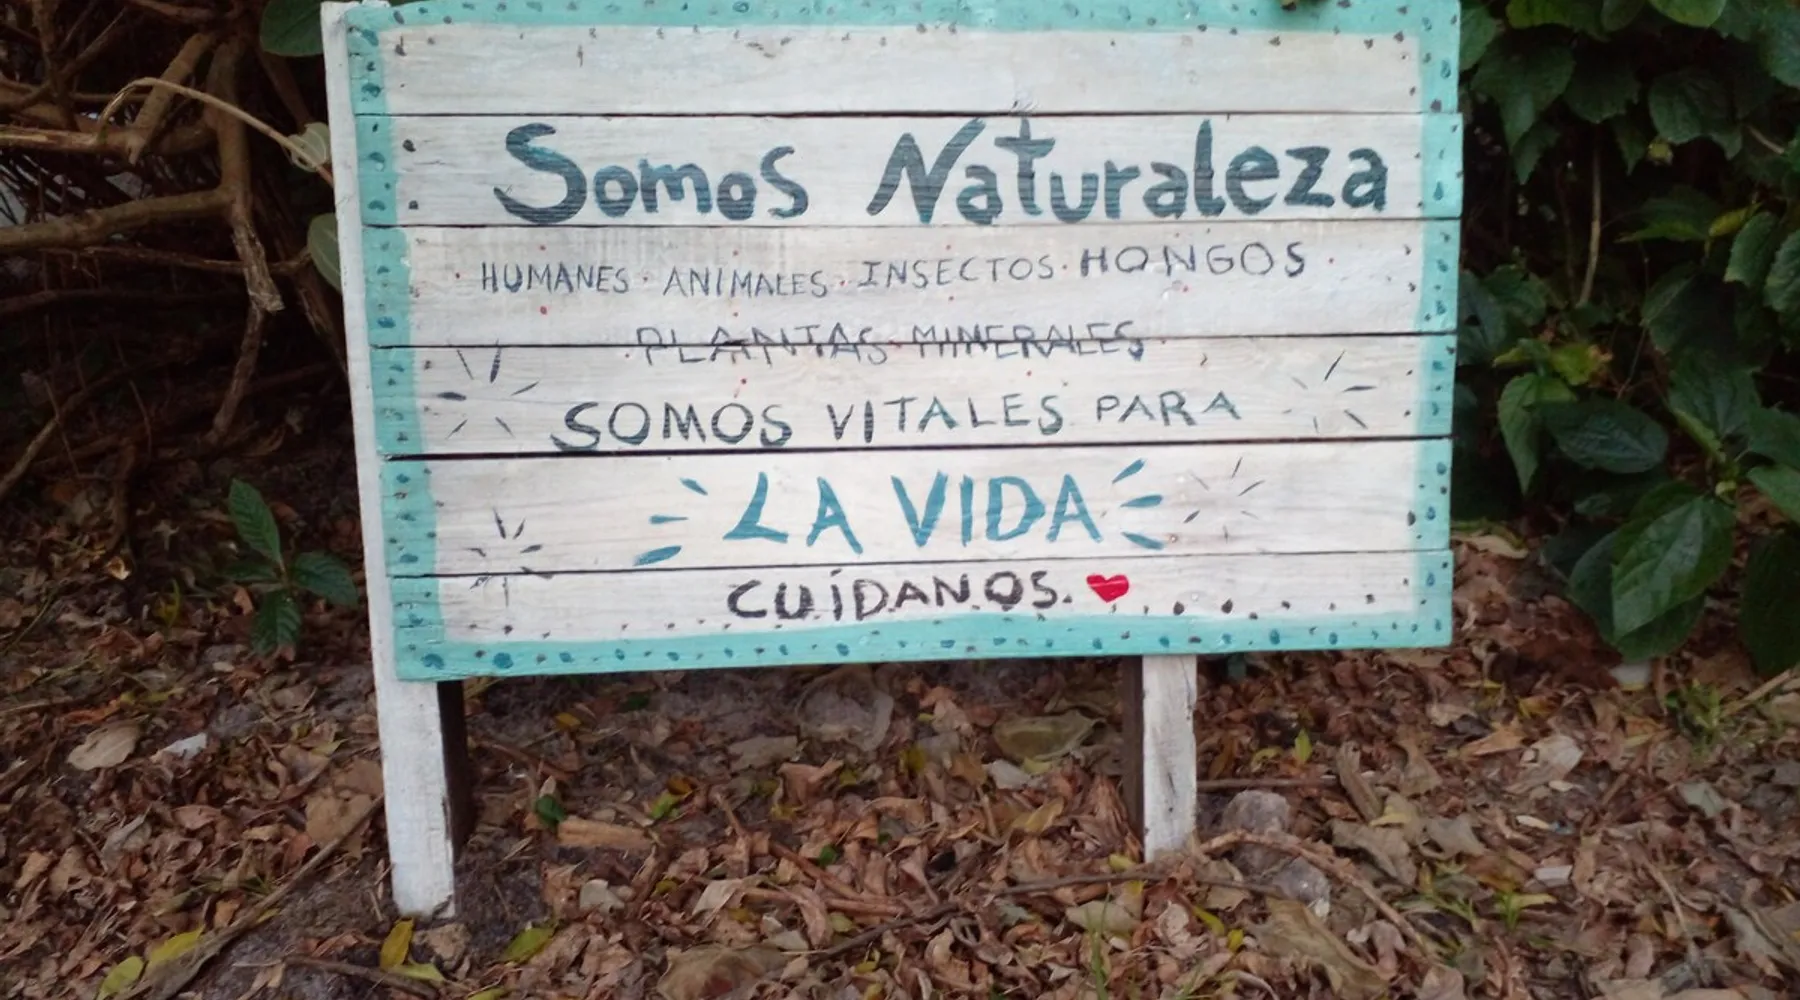 Somos Naturaleza
HUMANES · ANIMALES · INSECTOS · HONGOS ·
· PLANTAS · MINERALES
SOMOS VITALES PARA
LA VIDA
CUÍDANOS. ♥